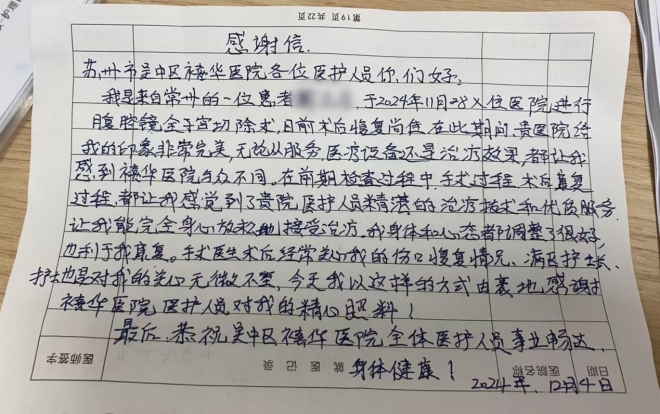 第19页 共22页
感谢信.
苏州市吴中区禧华医院各位医护人员你们好,
我是来自常州的一位患者 于2024年11月28入住医院,进行
腹腔镜全子宫切除术,目前术后恢复尚佳,在此期间,贵医院给
我的印象非常完美,无论从服务,医疗设备还是治疗效果,都让我
感到禧华医院与众不同。在前期检查过程中,手术过程,术后康复
过程,都让我感觉到了贵院医护人员精湛的治疗技术和优质服务.
让我能完全身心放松地接受治疗,我身体和心态都调整了很好,
也利于我康复。手术医生术后经常关心我的伤口恢复情况、病区护士长、
护士也是对我的关心无微不至,今天我以这样的方式由衷地感谢
禧华医院医护人员对我的精心照料!
最后,恭祝吴中区禧华医院全体医护人员事业畅达,
身体健康!
2024年,12月4日
医师签字
就医记录
医院名称
日期